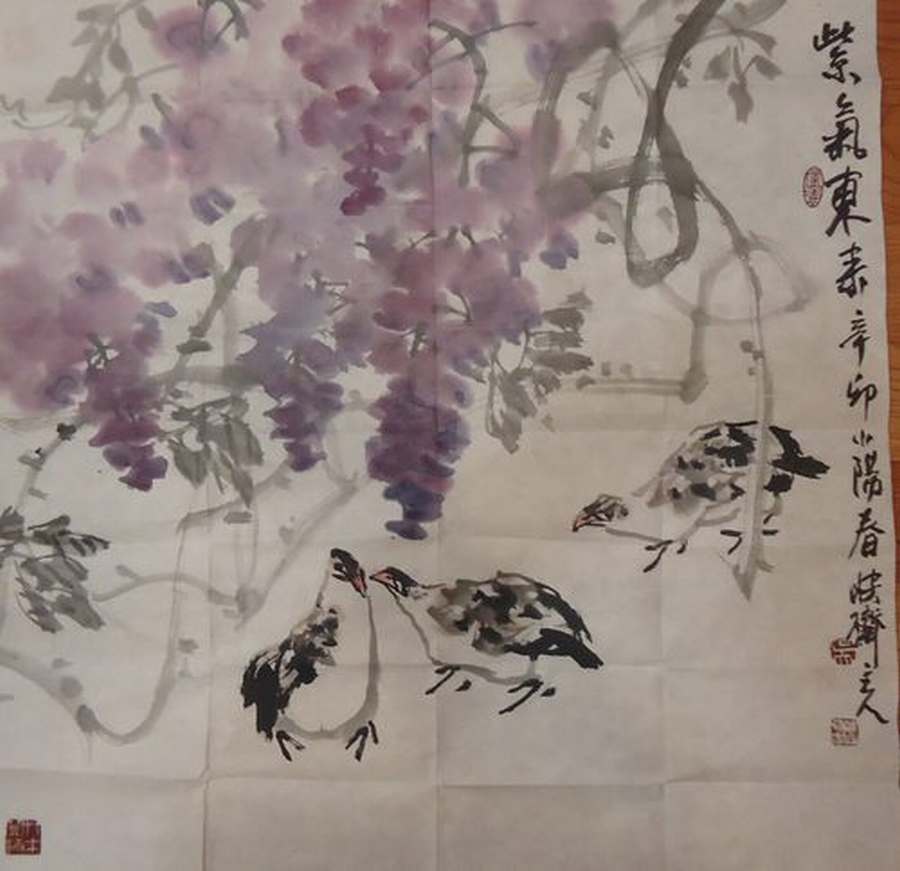 紫氣東来辛卯小陽春快齋主人